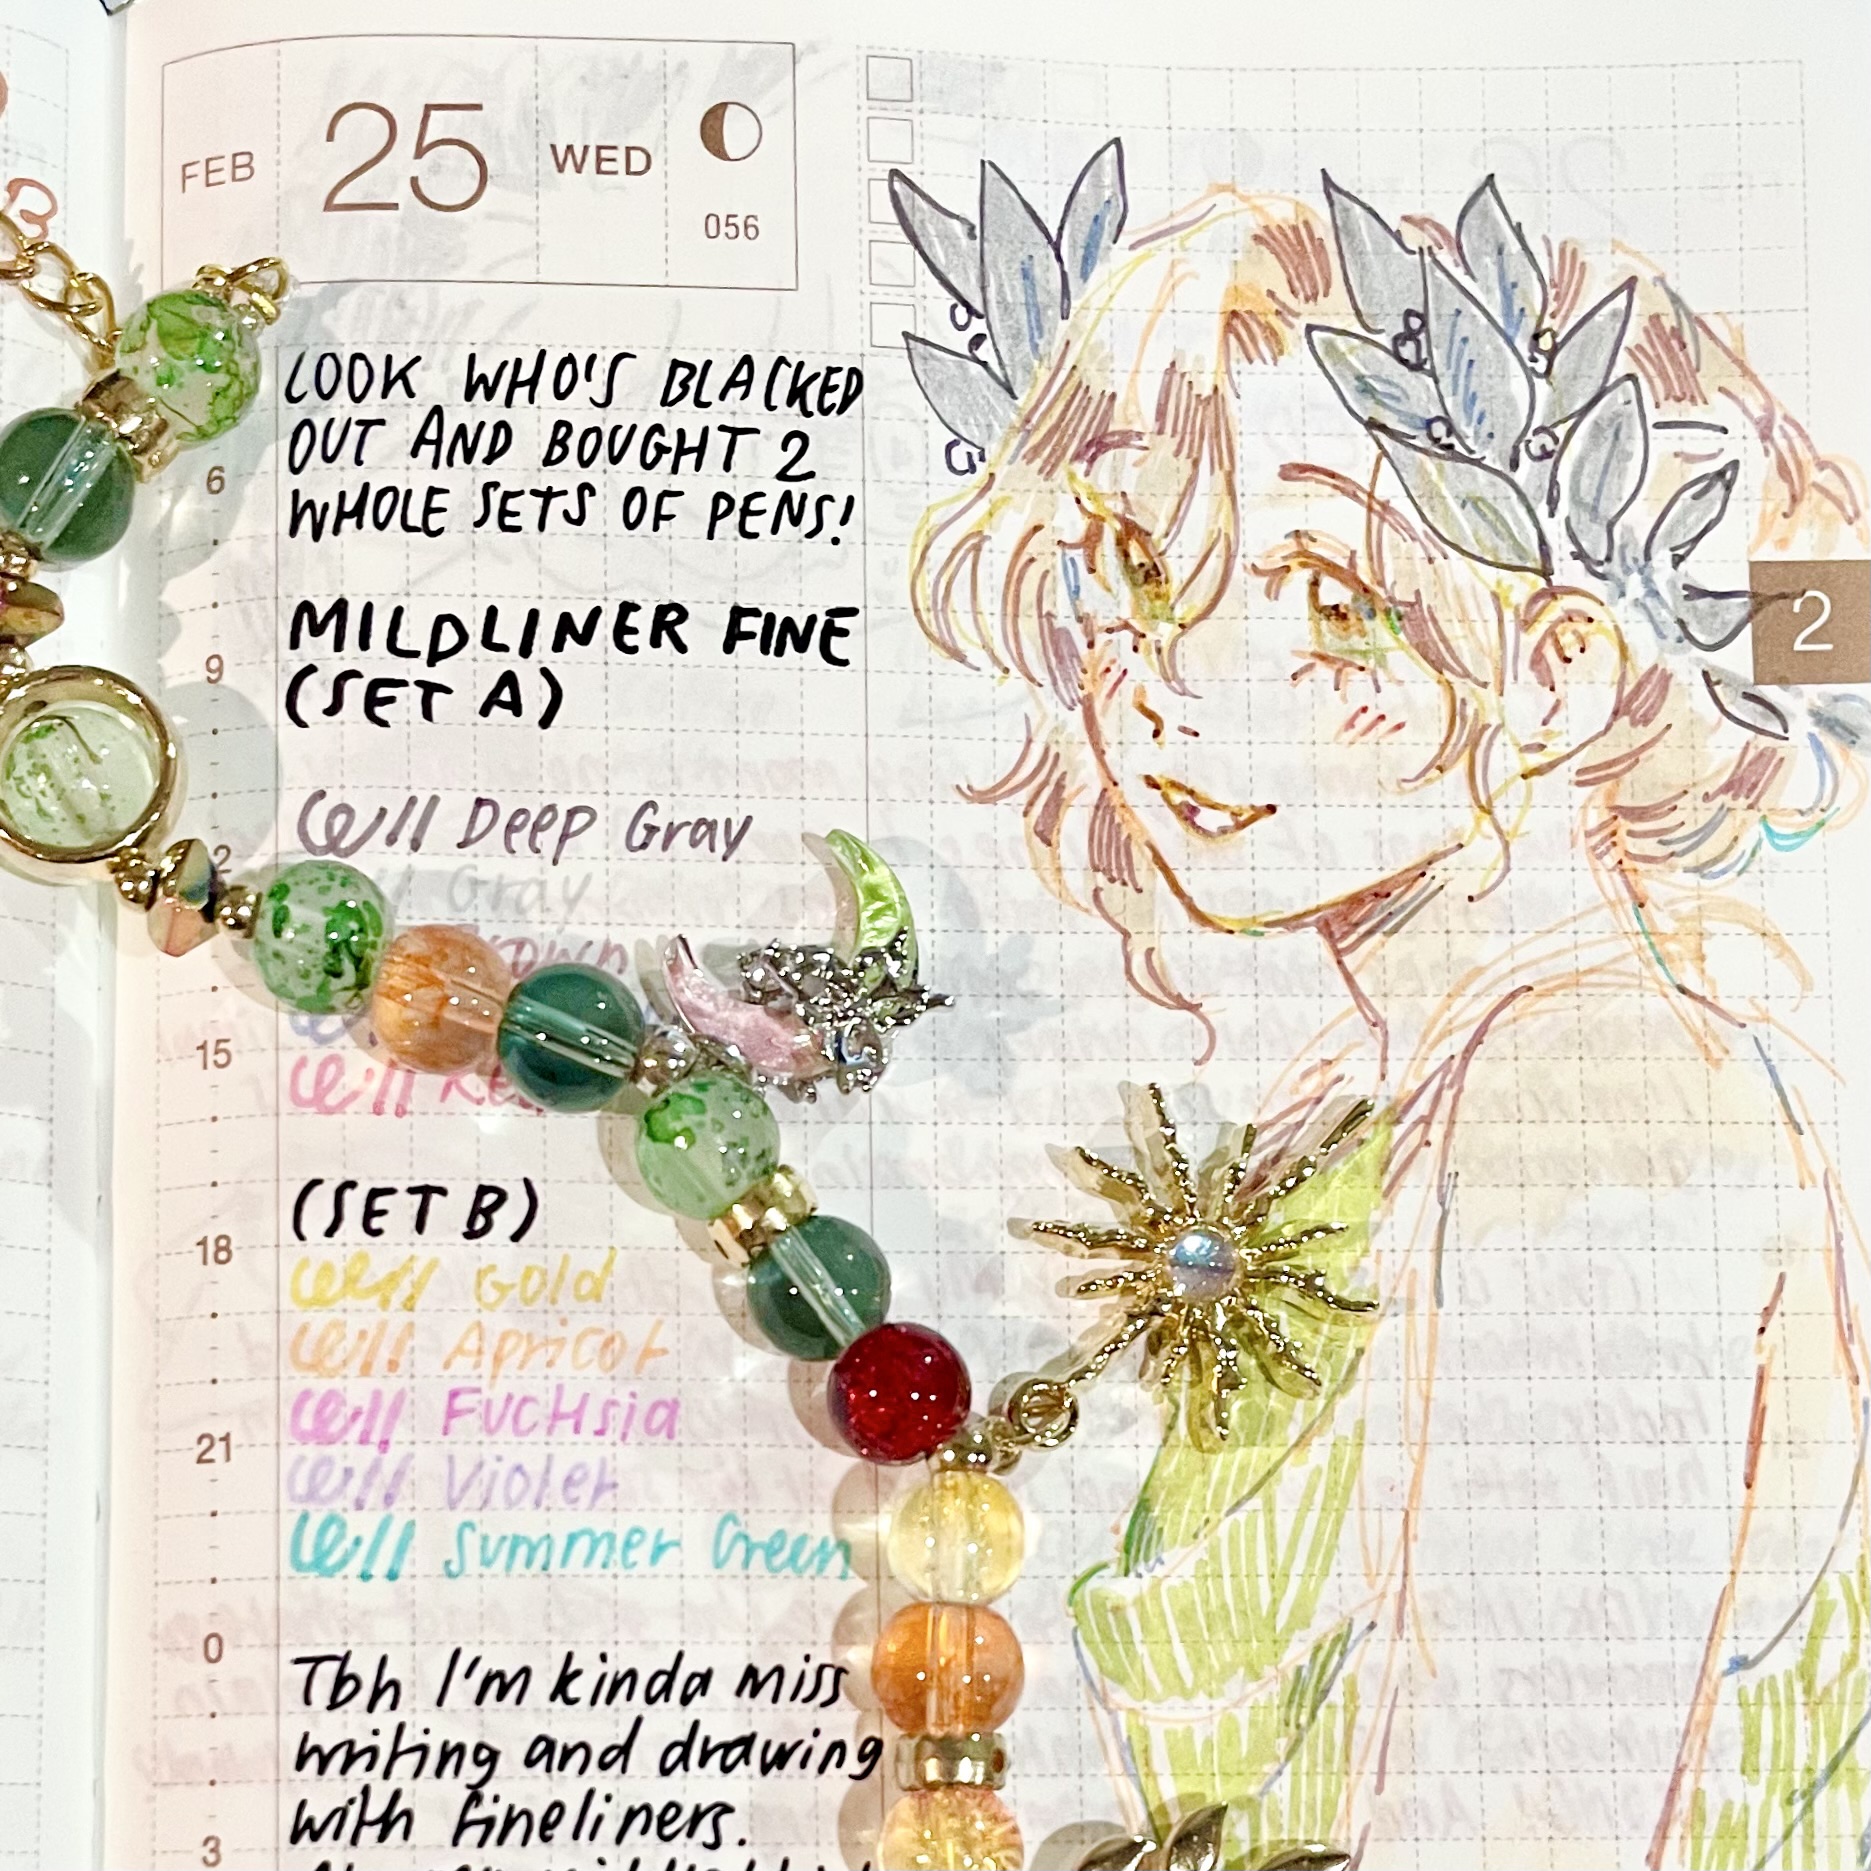 FEB 25 WED
056
LOOK WHO'S BLACKED
OUT AND BOUGHT 2
WHOLE SETS OF PENS!
MILDLINER FINE
(SET A)
Deep Gray
Gray
(SET B)
Gold
Apricot
Fuchsia
Violet
Summer Green
Tbh I'm kinda miss
writing and drawing
with fineliners.
6
9
15
18
21
0
3
2